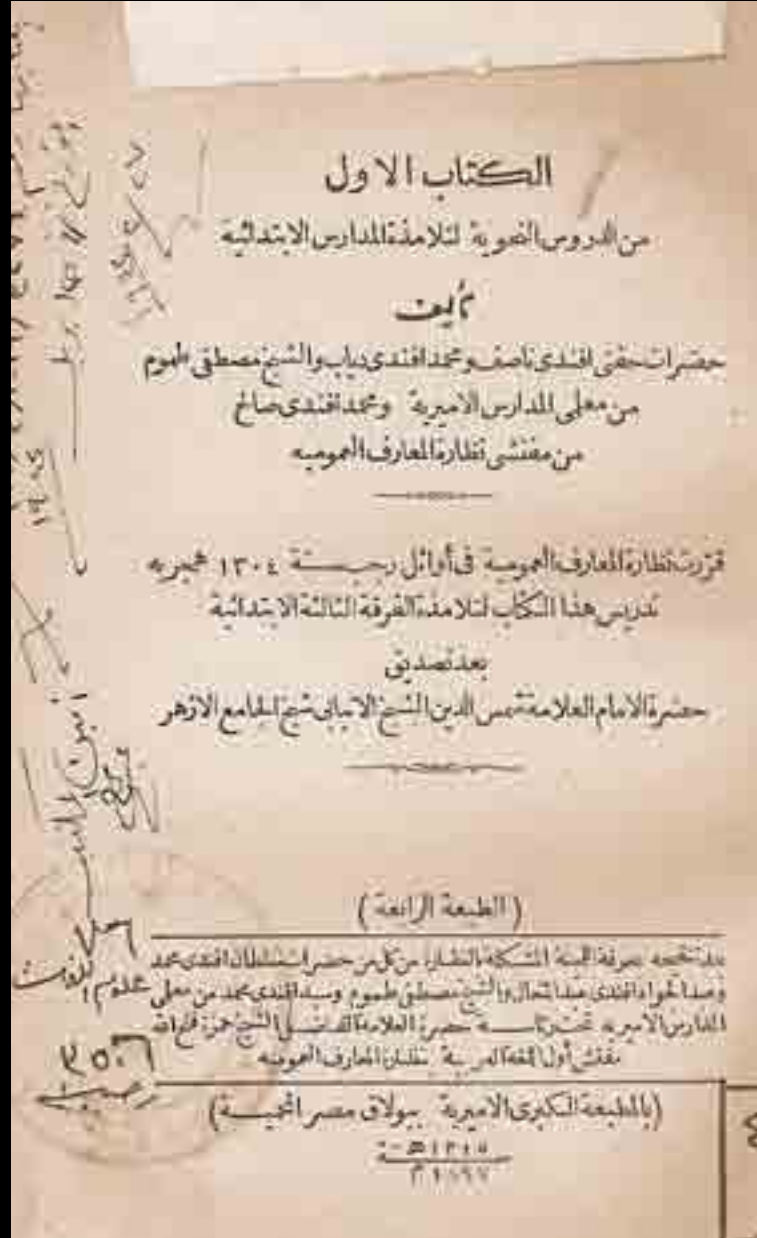 الكتاب الاول
من الدروس النحوية لتلامذة المدارس الابتدائية
تأليف
حضرات حفنى افندى ناصف ومحمد افندى دياب والشيخ مصطفى طموم
من معلمى المدارس الاميرية ومحمد افندى صالح
من مفتشى نظارة المعارف العموميه
قررت نظارة المعارف العمومية فى أوائل رجب سنة ١٣٠٤ هجريه
تدريس هذا الكتاب لتلامذة الفرقة الثالثة الابتدائية
بعد تصديق
حضرة الامام العلامة شمس الدين الشيخ الانبابى شيخ الجامع الازهر
(الطبعة الرابعة)
بمعرفة اللجنة المشكلة بالنظارة من كل من حضرات سلطان افندى محمد
وعبد الجواد افندى عبد المتعال والشيخ مصطفى طموم وسيد افندى محمد من معلمى
المدارس الاميريه تحت رئاسة حضرة العلامة الفاضل الشيخ حمزة فتح الله
مفتش أول اللغة العربية بنظارة المعارف العموميه
(بالمطبعة الكبرى الاميرية ببولاق مصر المحمية)
سنة ١٣١٥ هـ
١٨٩٧ م
علوم اللغت
٣٥٠٦